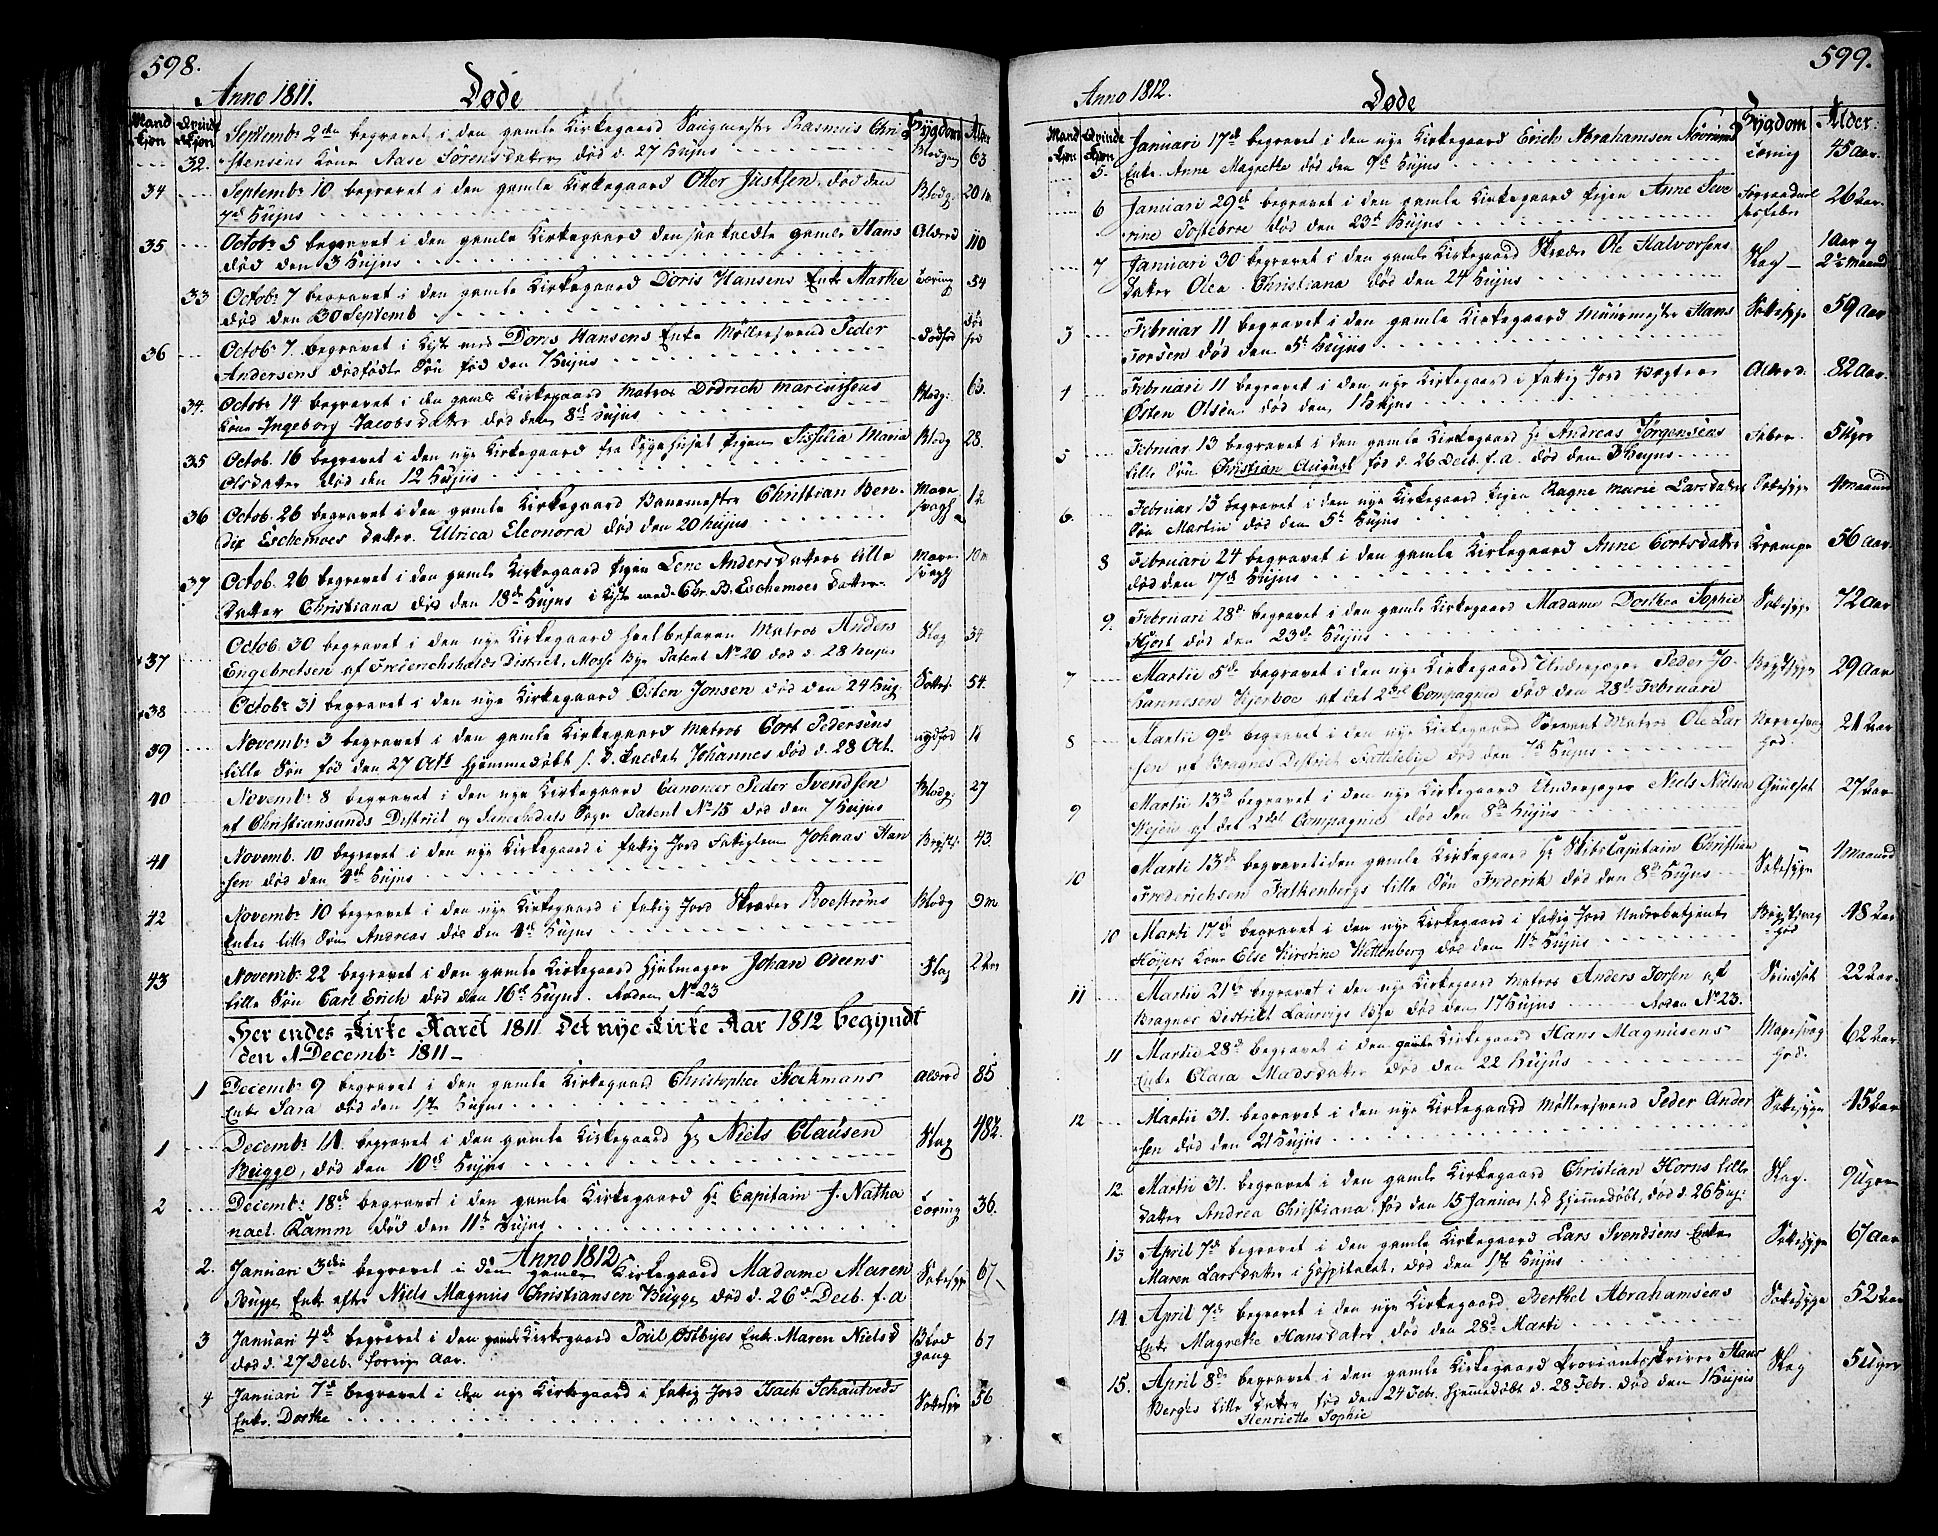 598.
Anno 1811. Døde
Mand Kjøn Qvinde Kjøn Sygdom Alder
Septembr 2den begravet i den gamle Kirkegaard Saugmester Rasmus Chri-
32. stensens Kone Aase Sørensdatter død d. 27 Hujus Blodgang 63
34 Septembr 10 begravet i den gamle Kirkegaard Oller Justsen, død den Blodg: 20
7d Hujus
35 Octobr 5 begravet i den gamle Kirkegaard den saakaldte gamle Hans Alderd 110
død den 3 Hujus
33 Octobr 7 begravet i den gamle Kirkegaard Doris Hansens Enke Marthe Tæring 54
død den 30 Septemb
36 Octobr 7 begravet i Kiste med Doris Hansens Enke Møllersvend Peder Dødfød
Andersens dødfødte Søn fød den 7 Hujus
34. Octobr 14 begravet i den gamle Kirkegaard Matros Dødrich Marcussens Blodg: 63.
Kone Ingeborg Jacobsdatter død den 8d Hujus
35 Octob. 16 begravet i den nye Kirkegaard fra Sygehuset Pigen Sissilia Maria Blodg 28.
Olsdatter død den 12 Hujus
36 Octob. 26 begravet i den gamle Kirkegaard Banemester Christian Ben-
dix Eschemoes datter. Ulrica Eleonora død den 20 hujus
37 Octob. 26 begravet i den gamle Kirkegaard Pigen Lene Andersdatters lille 10m
Datter Christiana død den 18de Hujus i Kiste med Chr. B. Eschemoes Datter
Octob. 30 begravet i den nye Kirkegaard heelbefaren Matros Anders Slag 34
37 Engebretsen af Friderichshalds District, Mosse Bye Patent No 20 død d. 28 hujus
38 Octobr 31 begravet i den nye Kirkegaard Østen Jonsen død den 24 Huj. 54.
39 Novembr 3 begravet i den gamle Kirkegaard Matros Cort Pedersens
lille Søn fød den 27 Oct. hjemmedøbt s. D. kaldet Johannes død d. 28 Oct.
40 Novembr 8 begravet i den nye Kirkegaard Canoneer Peder Svendsen Blodg: 27
af Christiansunds District Patent No 15 død den 7 Hujus
41 Novemb. 10 begravet i den nye Kirkegaard i fattig Jord Fattiglem Johnas Han 43.
sen død den 4d Hujus
42 Novembr 10 begravet i den nye Kirkegaard i fattig Jord Skræder Roestrøms Blodg 9m
Enkes lille Søn Andreas død den 4d Hujus
43 Novembr 22 begravet i den gamle Kirkegaard Hjulmager Johan Odeens Slag
lille Søn Carl Erich død den 16d Hujus. Roden No 23
Her endes Kirke Aaret 1811 Det nye Kirke Aar 1812 begyndt
den 1 Decembr 1811
1 Decembr 9 begravet i den gamle Kirkegaard Christopher Stockmans Alderd 85
Enke Sara død den 1te Hujus
1 Decembr 14 begravet i den gamle Kirkegaard Hr Niels Clausen Slag 48½.
Bugge, død den 10d Hujus
2 Decembr 18d begravet i den gamle Kirkegaard Hr Capitain J. Natha Tæring 36.
nael Ramm død den 11te Hujus
Anno 1812
2. Januari 3die begravet i den gamle Kirkegaard Madame Maren Sotesyge 67
Bugge Enke efter Niels Magnus Christiansen Bugge død d. 26d Decb. f. a
3 Januari 4d begravet i den gamle Kirkegaard Poul Østbyes Enke Maren Nielsd Blod 67
død d. 27 Decb. forrige Aar. gang
4 Januari 7d begravet i den nye Kirkegaard i fattig Jord Isach Schautveds Sotesyge 56
Enke Dorthe
599.
Anno 1812. Døde
Mand Kjøn Qvinde Kjøn Sygdom Alder:
Januari 17d begravet i den nye Kirkegaard Erich Abrahamsen Tæring 45 Aar.
5. Enke Anne Magrethe død den 9d Hujus
6 Januari 29d begravet i den gamle Kirkegaard Pigen Anne Seve 26 Aar.
rine Tostebroe død den 23d Hujus
7 Januari 30 begravet i den gamle Kirkegaard Skræder Ole Halvorsens Slag 1 Aar og
Datter Olea Christiana død den 24 Hujus
3 Februar 11 begravet i den gamle Kirkegaard Muurmester Hans Sotesyge 59 Aar
Torsen død den 5t Hujus
4 Februari 11 begravet i den nye Kirkegaard i fattig Jord Vægter Alderd. 82 Aar.
Østen Olsen død den 1 Hujus
5 Februar 13 begravet i den gamle Kirkegaard Hr Andreas Jørgensens Feber 5 Uger
lille Søn Christian August fød d. 26 Decb. f. a. død den 3 Hujus
6. Februar 15 begravet i den nye Kirkegaard Pigen Ragne Marie Larsdatters Sotesyge 4 Maaned
Søn Martin død den 5t Hujus
8 Februari 24 begravet i den gamle Kirkegaard Anne Cortsdatter Krampe 56 Aar.
død den 17d Hujus
9. Februari 28d begravet i den gamle Kirkegaard Madame Dorthea Sophie Sotesyge 72 Aar
Hjort død den 23d Hujus
7 Martii 5d begravet i den nye Kirkegaard Underjæger Peder Jo- Brystsyge 29 Aar
hannesen Kjerboe af det 2det Compagnie død den 28d Februari
8 Martii 9d begravet i den nye Kirkegaard Matros Ole Lar 21 Aar
sen af Bragnes District død den 7d Hujus
9 Martii 13d begravet i den nye Kirkegaard Underjæger Niels Nielsen Guulsot 27 Aar
Weien af det 2det Compagnie død den 8d Hujus
10 Marti 13de begravet i den gamle Kirkegaard Hr Skibscapitain Christian Sotesyge Maaned
Frederichsen Falkenbergs lille Søn Frederik død den 8d Hujus
10 Marti 17de begravet i den nye Kirkegaard i fattig Jord Underbetjent Brystsvag 48 Aar
Høyers Kone Else Kirstine Wettenberg død den 11te Hujus hed
11 Martii 21de begravet i den nye Kirkegaard Matros Anders Torsen af 22 Aar.
Bragnes District Laurvigs død den 17 Hujus Roden No 23.
11 Martii 28d begravet i den gamle Kirkegaard Hans Magnusens Mavesvag 62 Aar
Enke Clara Madsdatter død den 22 Hujus hed.
12 Martii 31. begravet i den nye Kirkegaard Møllersvend Peder Ander Sotesyge 45 Aar
sen død den 21 Hujus
12 Martii 31. begravet i den gamle Kirkegaard Christian Horns lille Slag. 9 Ugers
Datter Andrea Christiana fød den 15 Januar i. d. Hjemmedøbt, død d. 26 Huj:
13 April 7d begravet i den gamle Kirkegaard Lars Svendsens Enke Sotesyge 67 Aar
Maren Larsdatter i Hospitalet, død den 1te Hujus
14 April 7d begravet i den nye Kirkegaard Berthel Abrahamsens Sotesyge 52 Aar
Enke Magrethe Hansdatter, død den 28d Marti
15. April 8d begravet i den gamle Kirkegaard Proviantskriver Hans Slag 5 Uger
Berghs lille Datter fød den 24 Febr. Hjemmedøbt d. 28 Febr. død den 1 Hujus
Henriette Sophie